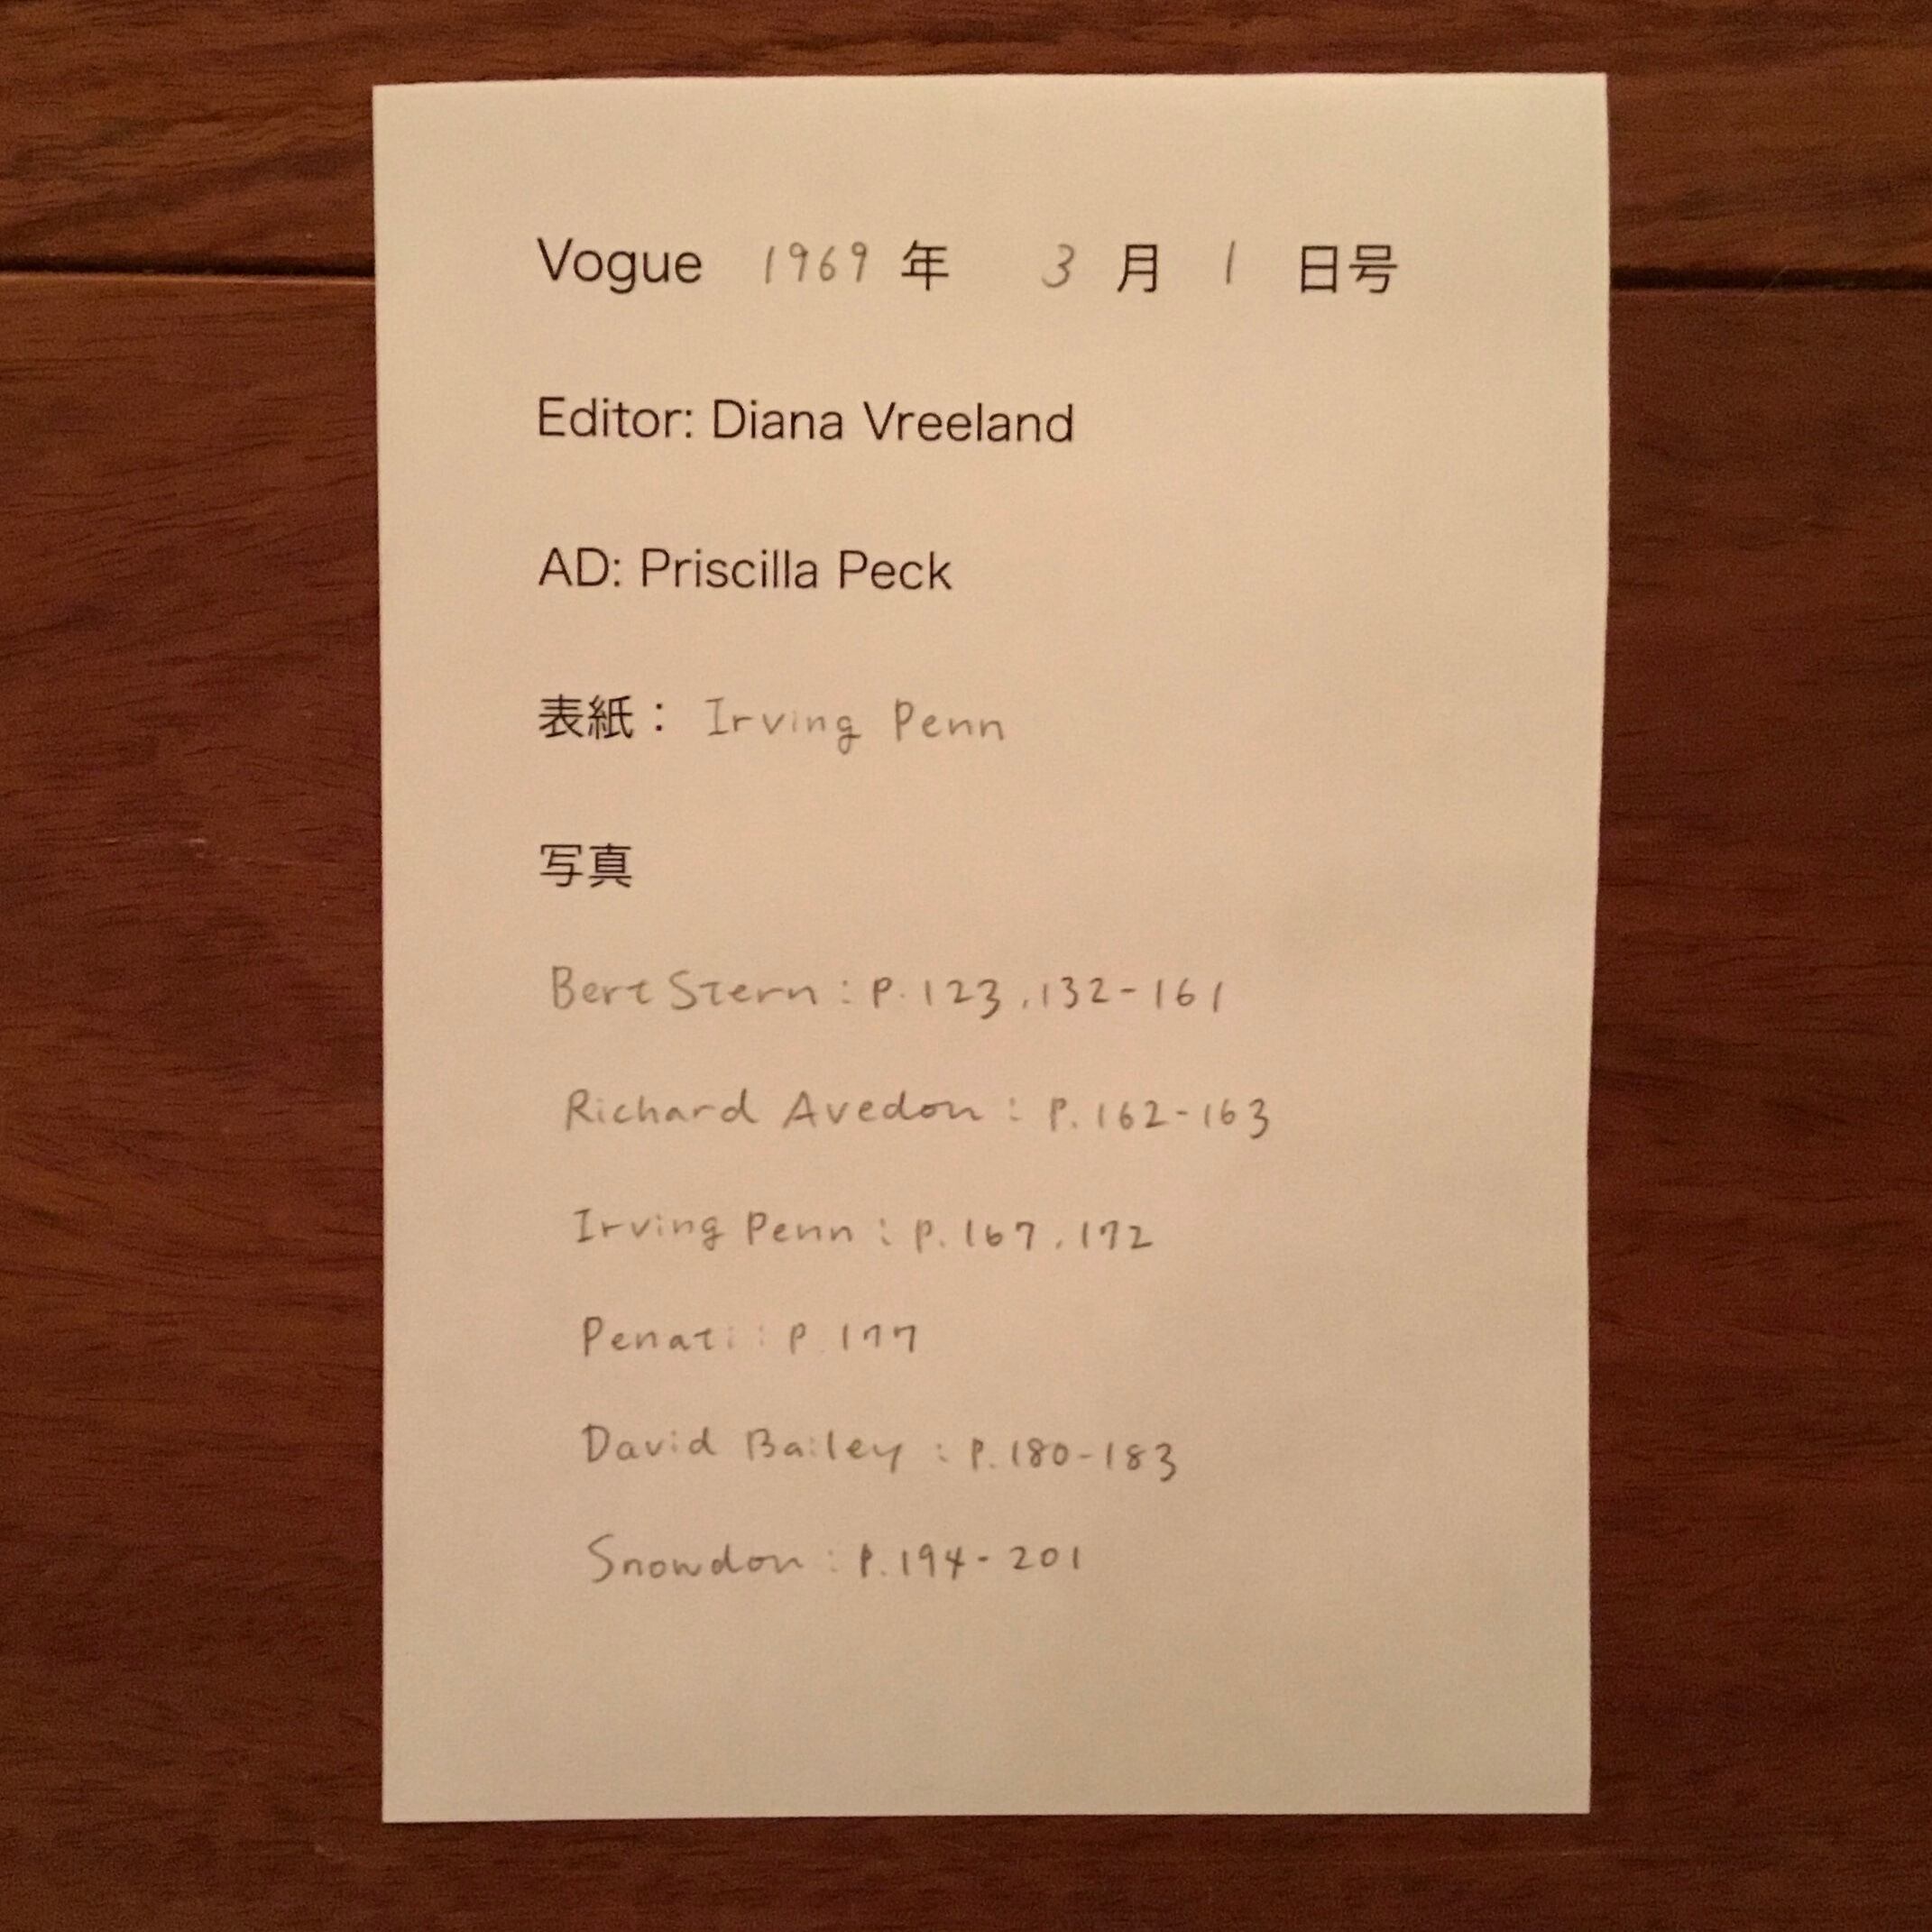 Vogue 1969 年 3 月 1 日号
Editor: Diana Vreeland
AD: Priscilla Peck
表紙： Irving Penn
写真
Bert Stern : P. 123, 132-161
Richard Avedon : P. 162-163
Irving Penn : P. 167, 172
Penati : P. 177
David Bailey : P. 180-183
Snowdon : P. 194-201